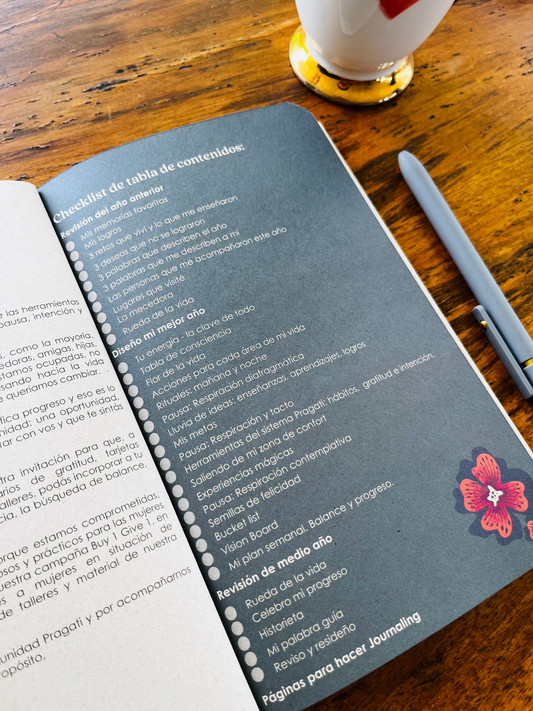 e las herramientas
pausa, intención y
s, como la mayoría,
edoras, amigas, hijas,
stamos ocupadas, no
sando hacia la vida
e queríamos cambiar.
fica progreso y eso es lo
nidad: una oportunidad,
rar con vos y que te sintás
tra invitación para que, a
arios de gratitud, tarjetas
alleres, podás incorporar a tu
cia, la búsqueda de balance.
orque estamos comprometidas
osos y prácticos para las mujeres
uestra campaña Buy 1 Give 1, en
s a mujeres en situación de
de talleres y material de nuestra
unidad Pragati y por acompañarnos
opósito.
Checklist de tabla de contenidos:
Revisión del año anterior
Mis memorias favoritas
Mis logros
3 retos que viví y lo que me enseñaron
3 deseos que no se lograron
3 palabras que describen el año
3 palabras que me describen a mí
Las personas que me acompañaron este año
Lugares que visité
La mecedora
Rueda de la vida
Diseño mi mejor año
Tu energía - la clave de todo
Tabla de consciencia
Flor de la vida
Acciones para cada área de mi vida
Rituales: mañana y noche
Pausa: Respiración diafragmática
Lluvia de ideas: enseñanzas, aprendizajes, logros
Mis metas
Pausa: Respiración y tacto
Herramientas del sistema Pragati: hábitos, gratitud e intención.
Saliendo de mi zona de confort
Experiencias mágicas
Pausa: Respiración contemplativa
Semillas de felicidad
Bucket list
Vision Board
Mi plan semanal. Balance y progreso.
Revisión de medio año
Rueda de la vida
Celebro mi progreso
Historieta
Mi palabra guía
Reviso y resideño
Páginas para hacer Journaling